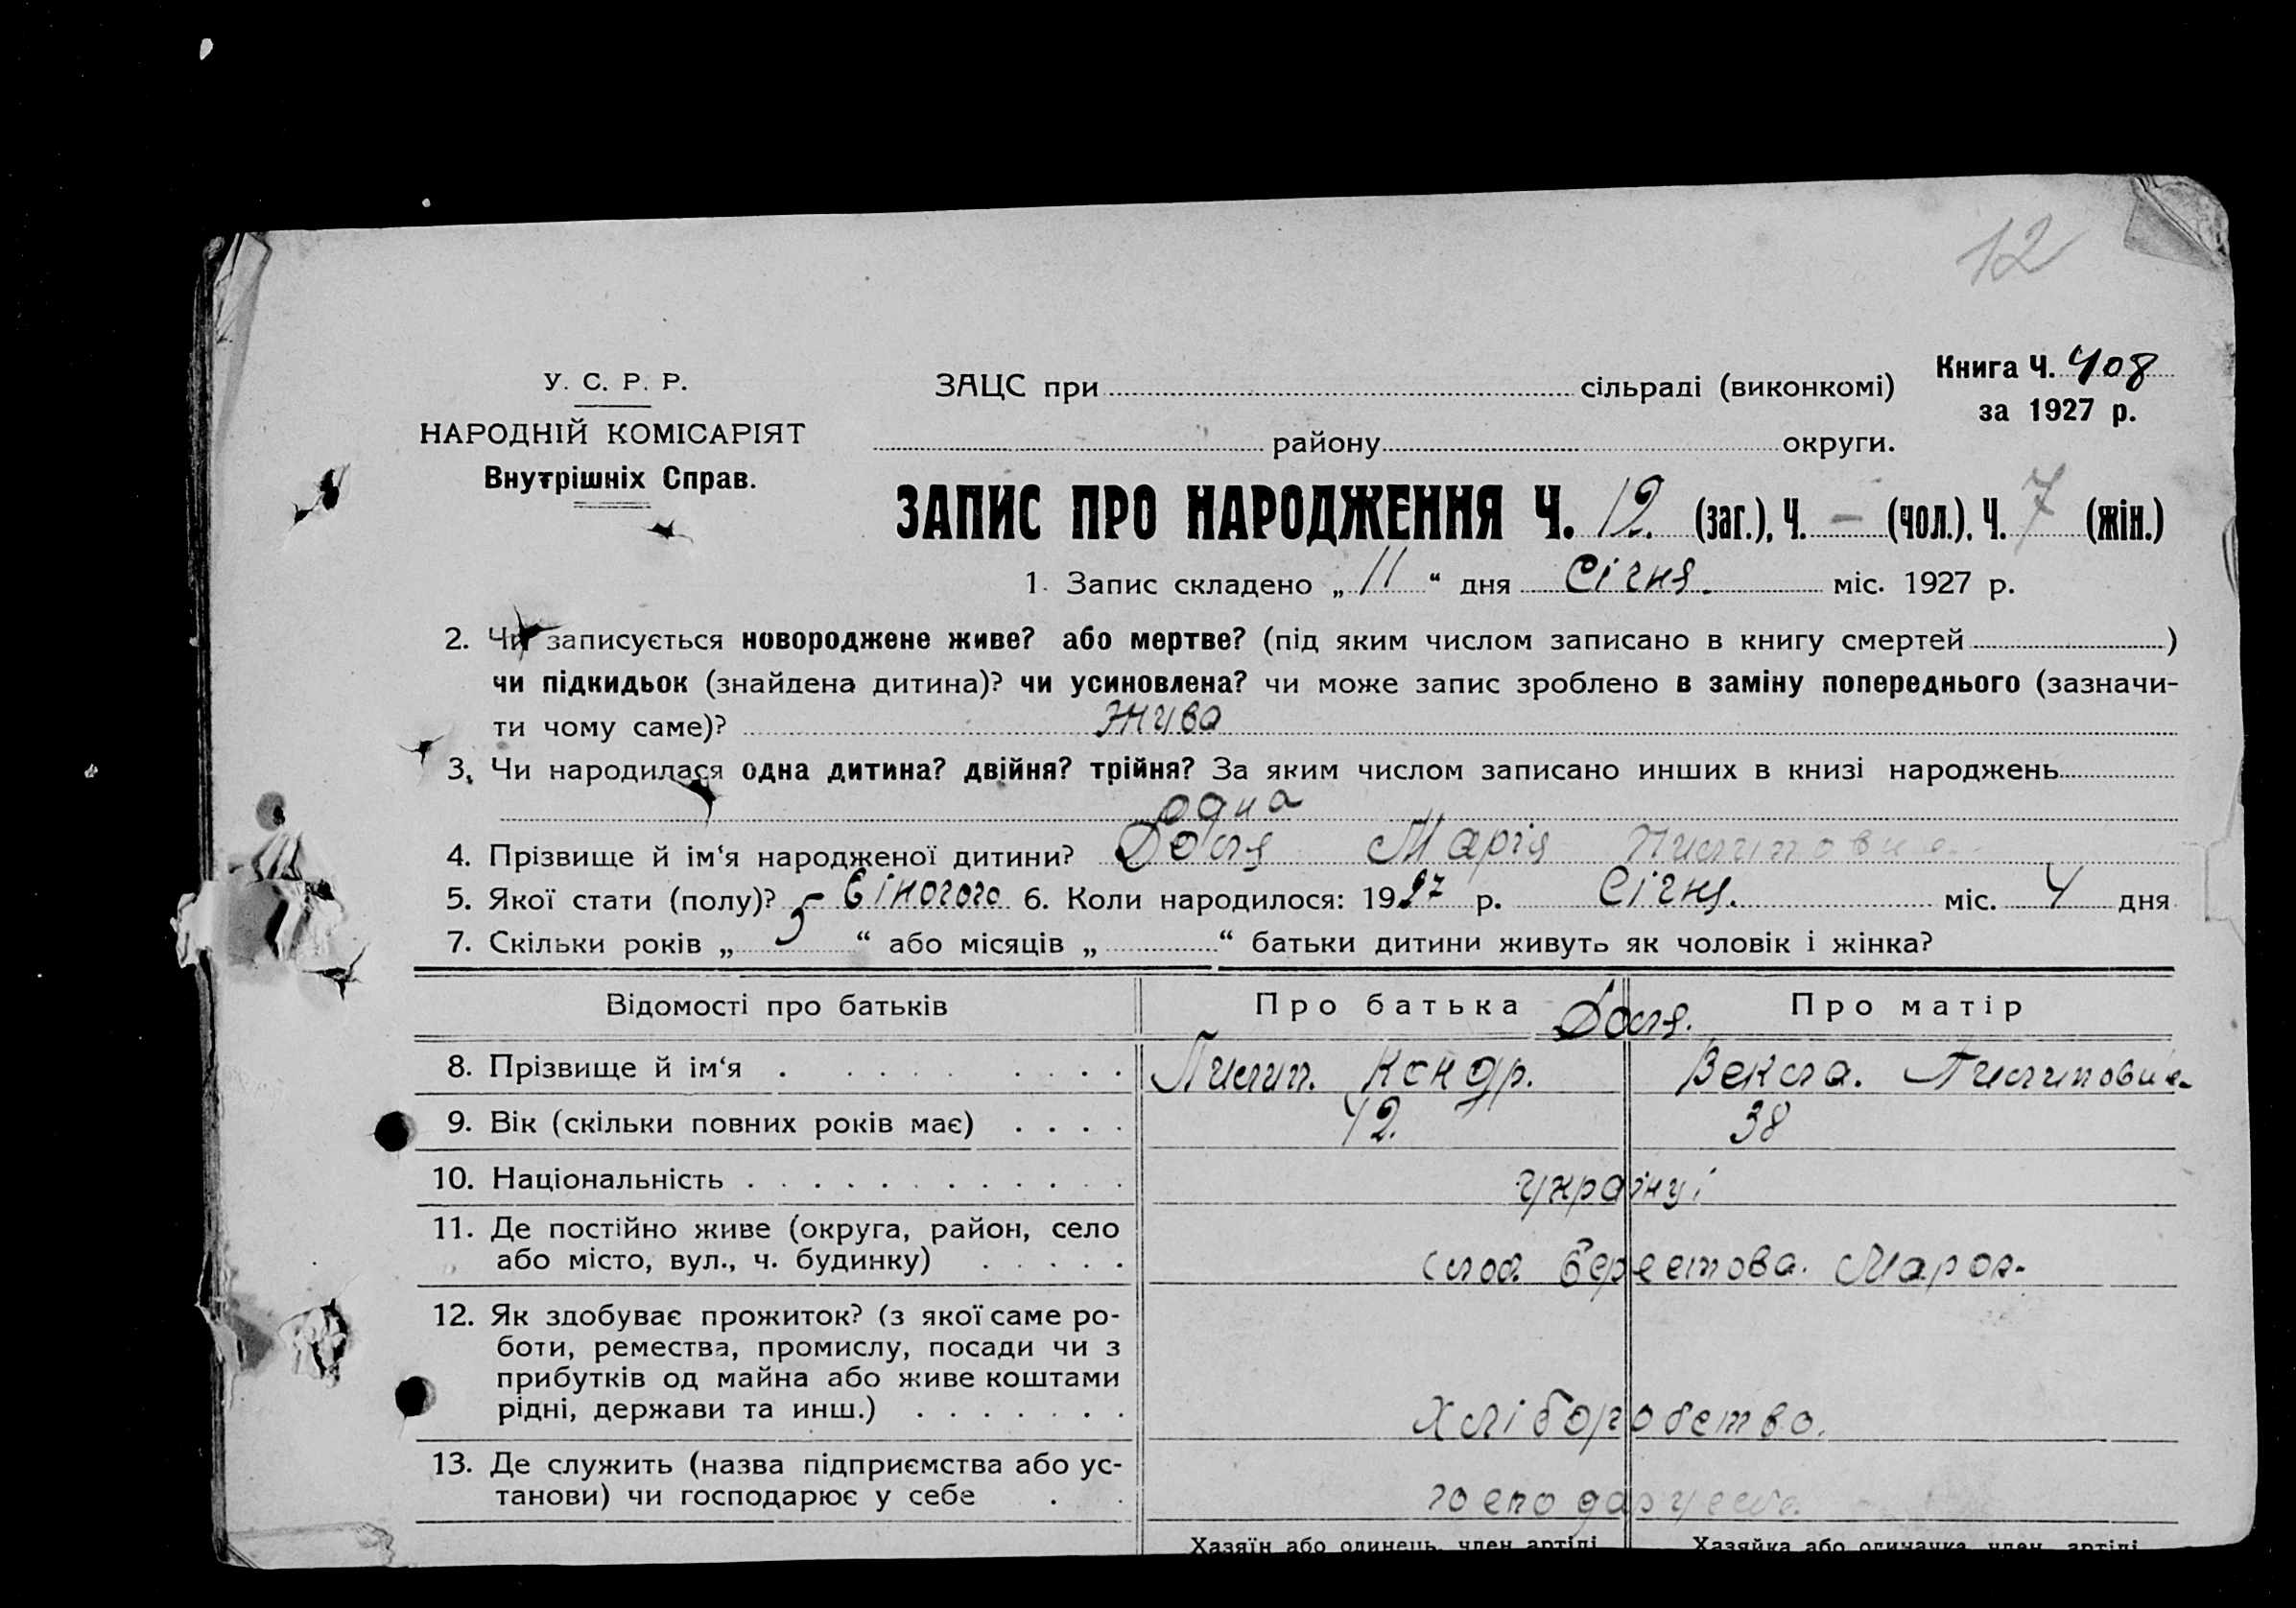 12
Книга Ч. 408
за 1927 р.
У. С. Р. Р.
НАРОДНІЙ КОМІСАРІЯТ
Внутрішніх Справ.
ЗАЦС при сільраді (виконкомі)
району округи.
ЗАПИС ПРО НАРОДЖЕННЯ Ч. 12. (заг.), Ч. - (чол.), Ч. 7 (жін.)
1. Запис складено „ 11 “ дня Січня. міс. 1927 р.
2. Чи записується новороджене живе? або мертве? (під яким числом записано в книгу смертей )
чи підкидьок (знайдена дитина)? чи усиновлена? чи може запис зроблено в заміну попереднього (зазначи-
ти чому саме)? жива
3. Чи народилася одна дитина? двійня? трійня? За яким числом записано инших в книзі народжень
одна
4. Прізвище й ім‘я народженої дитини? Доля Марія Пилиповна
5. Якої стати (полу)? 6. Коли народилося: 1927 р. Січня. міс. 4 дня
7. Скільки років „ 5 “ або місяців „ “ батьки дитини живуть як чоловік і жінка?
Відомості про батьків Про батька Доля. Про матір
8. Прізвище й ім‘я Пилип. Кондр. Векла. Пилиповна
9. Вік (скільки повних років має) 42. 38
10. Національність українці
11. Де постійно живе (округа, район, село
або місто, вул., ч. будинку) слоб. Берестова. Маров.
12. Як здобуває прожиток? (з якої саме ро-
боти, ремества, промислу, посади чи з
прибутків од майна або живе коштами
рідні, держави та инш.) Хліборобство.
13. Де служить (назва підприємства або ус-
танови) чи господарює у себе
Хазяїн або одинець, член артілі Хазяйка або одиначка, член артілі